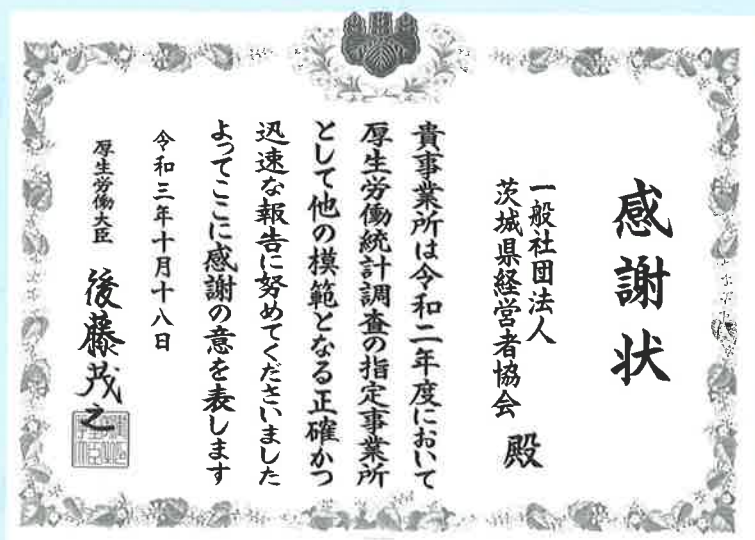 感謝状
一般社団法人
茨城県経営者協会 殿
貴事業所は令和二年度において
厚生労働統計調査の指定事業所
として他の模範となる正確かつ
迅速な報告に努めてくださいました
よってここに感謝の意を表します
令和三年十月十八日
厚生労働大臣 後藤茂之